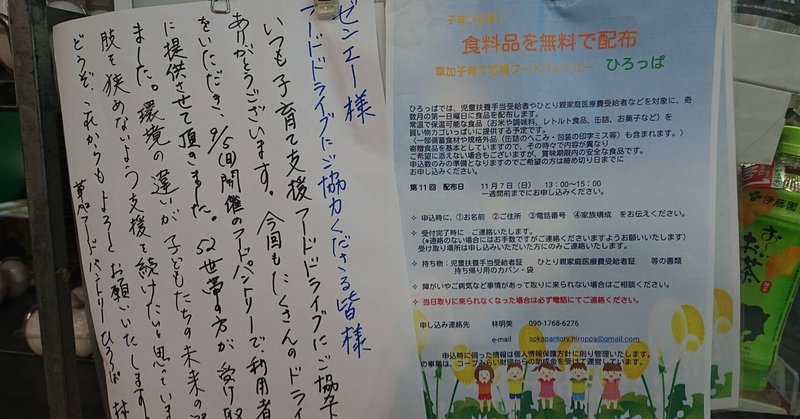 ゼンエー様
フードドライブにご協力くださる皆様
いつも子育て支援フードドライブにご協
ありがとうございます。今回もたくさんのドライ
をいただき、9/5(日)開催のフードパントリーで、利用者
に提供させて頂きました。52世帯の方が受け取
ました。環境の違いが子どもたちの未来の選
肢を狭めないよう支援を続けたいと思っていま
どうぞ、これからもよろしくお願いいたします
草加フードパントリーひろっぱ 林
食料品を無料で配布
草加子育て応援フードパントリー ひろっぱ
ひろっぱでは、児童扶養手当受給者やひとり親家庭医療費受給者などを対象に、奇
数月の第一日曜日に食品を配布します。
常温で保存可能な食品（お米や調味料、レトルト食品、缶詰、お菓子など）を
買い物カゴいっぱいに提供する予定です。
（一部備蓄食材や規格外品（缶詰のへこみ・包装の印字ミス等）も含まれます。）
寄贈食品を基本としていますので、その時々で内容が異なり
ご希望に添えない場合もございますが、賞味期限内の安全な食品です。
申込数のみの準備となりますのでご希望の方は締め切り日までに
お申し込みください。
第11回 配布日 11月7日（日） 13：00～15：00
一週間前までにお申し込みください。
❖ 申込時に、①お名前 ②ご住所 ③電話番号 ④家族構成 をお伝えください。
❖ 受付完了時に ご連絡いたします。
（*連絡のない場合にはお手数ですがご連絡くださいますようお願いいたします）
受け取り場所は申し込みいただいた方にのみご連絡いたします。
❖ 持ち物：児童扶養手当受給者証 ひとり親家庭医療費受給者証 等の書類
持ち帰り用のカバン・袋
❖ 障がいやご病気など事情があって取りに来られない場合はご相談ください。
❖ 当日取りに来られなくなった場合は必ず電話にてご連絡ください。
申し込み連絡先 林明美 090-1768-6276
e-mail sokapantory.hiroppa@gmail.com
申込時に伺った情報は個人情報保護方針に則り管理いたします。
の事業は、コープみらい財団からの助成金を受けて運営しています。
伊藤園
お～いお茶